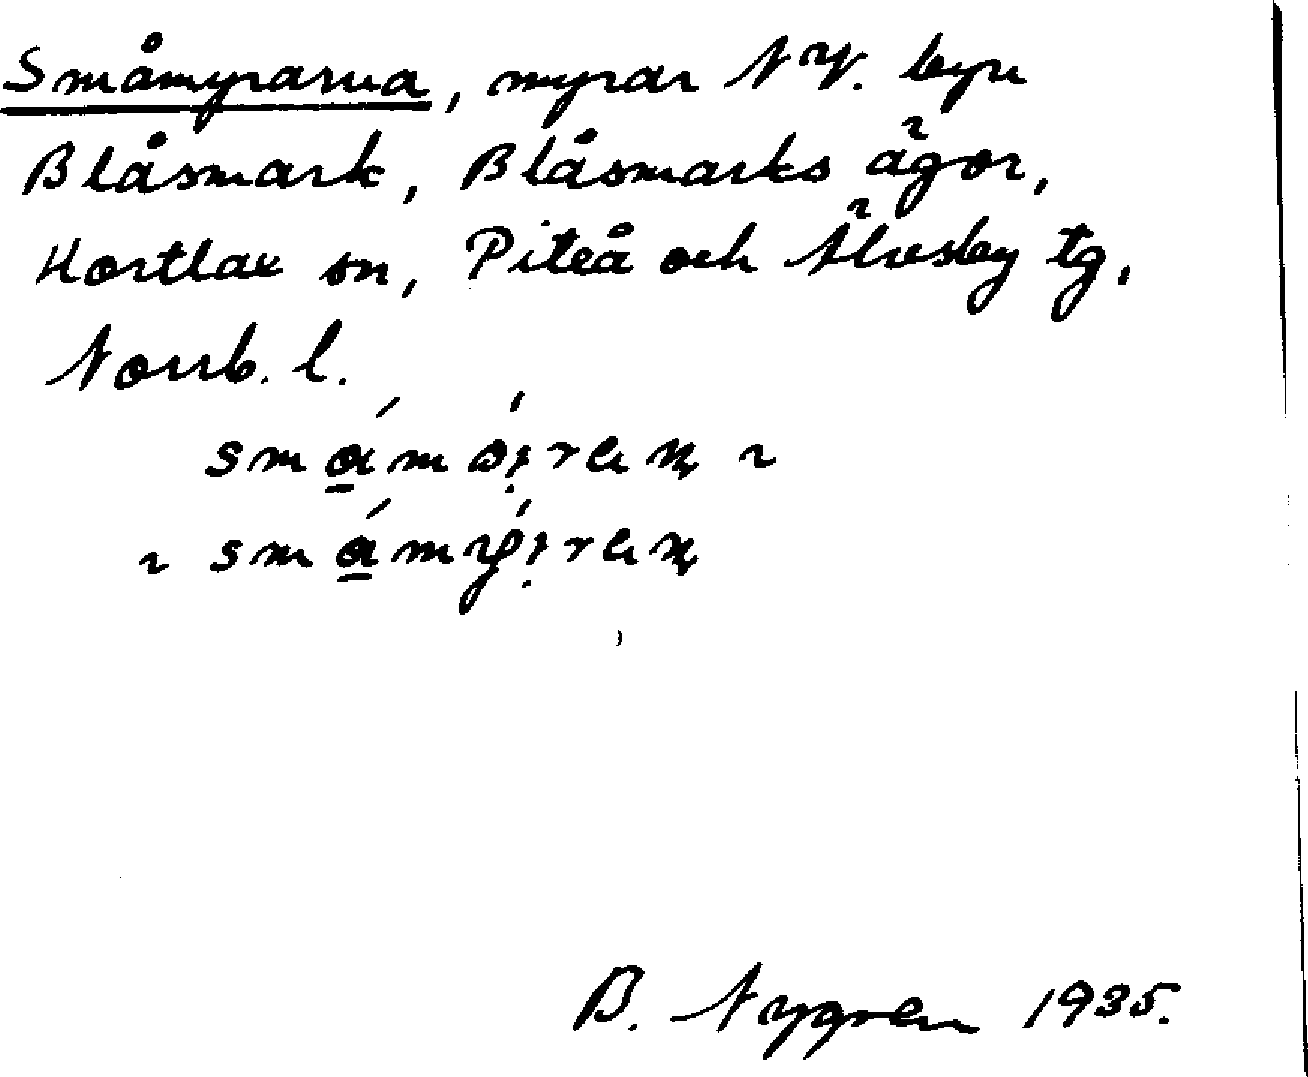 Småmyrarna, myrar NV. byn
Blåsmark, Blåsmarks ägor,
Hortlax sn, Piteå och Älvsby tg,
Norrb. l.
B. Nygren 1935.